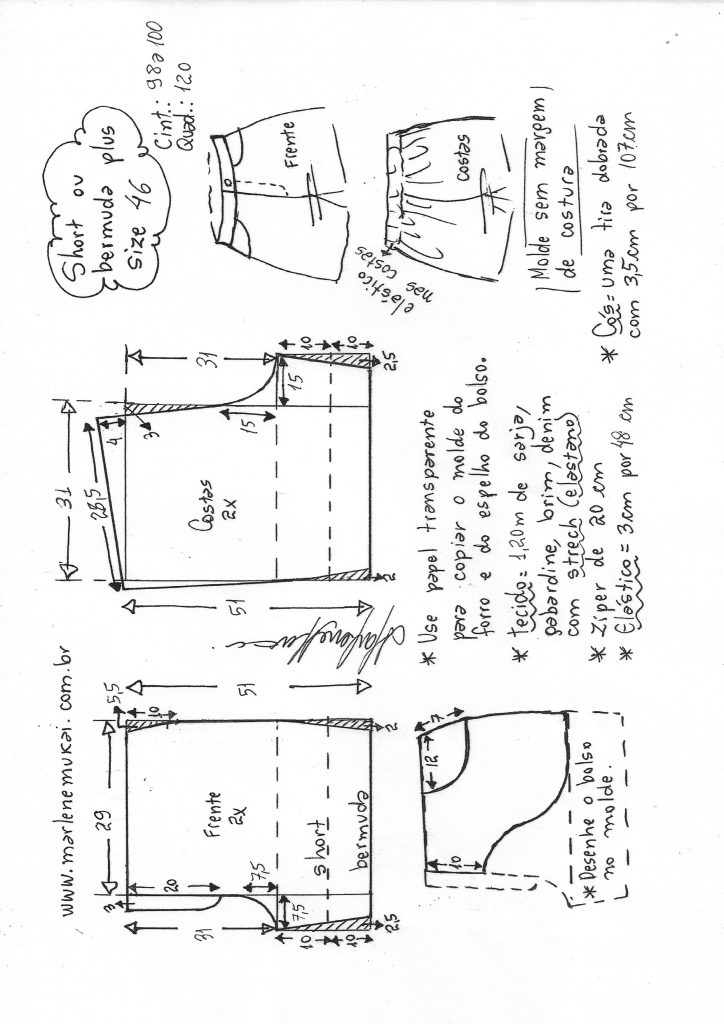 www.marlenemukai.com.br
Short ou
bermuda plus
size 46
Cint.: 98 a 100
Quad.: 120
29
3
20
5,5
10
Frente
2x
31
51
7,5
7,5
short
bermuda
10
10
2,5
2
31
28,5
4
3
Costas
2x
15
31
51
15
10
10
2
2,5
Frente
elástico
nas costas
costas
12
7
10
* Desenhe o bolso
no molde.
* Use papel transparente
para copiar o molde do
forro e do espelho do bolso.
* Tecido = 1,20m de sarja,
gabardine, brim, denim
com strech (elastano)
* Zíper de 20 cm
* Elástico = 3cm por 48 cm
Molde sem margem
de costura
* Cós = uma tira dobrada
com 3,5cm por 107cm